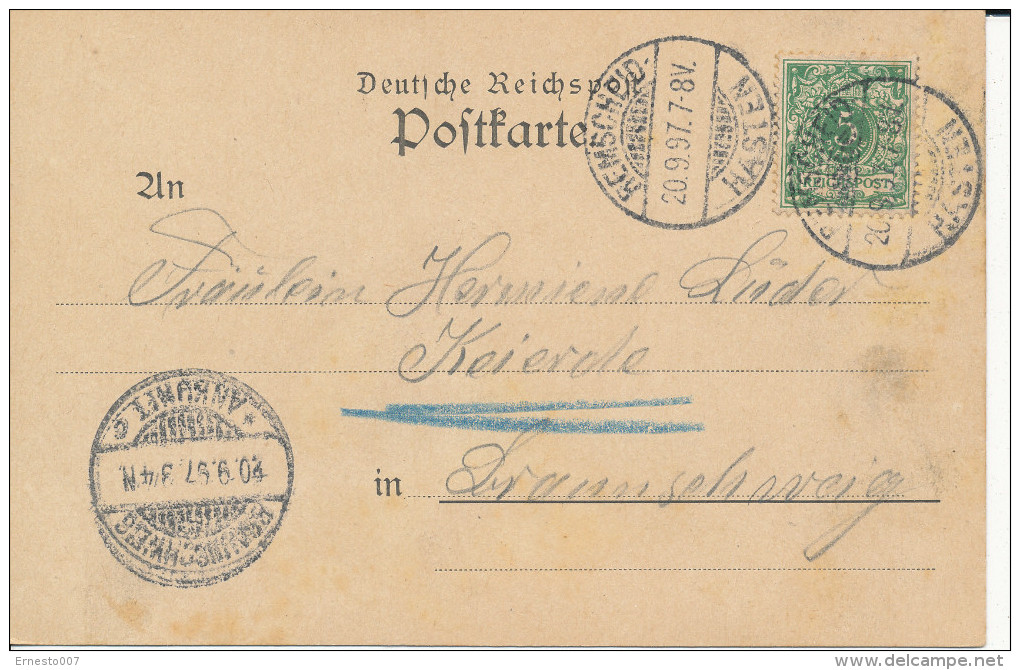 Deutsche Reichspost
Postkarte
REMSCHEID-
20.9.97.7-8V.
HASTEN
5
REICHSPOST
20
HAS
An
Fräulein Hermiene Lüder
Keierde
in Braunschweig
* ANKUNFT C
20.9.97.3/4N.
BRAUNSCHWEIG
Ernesto007
delcampe.net